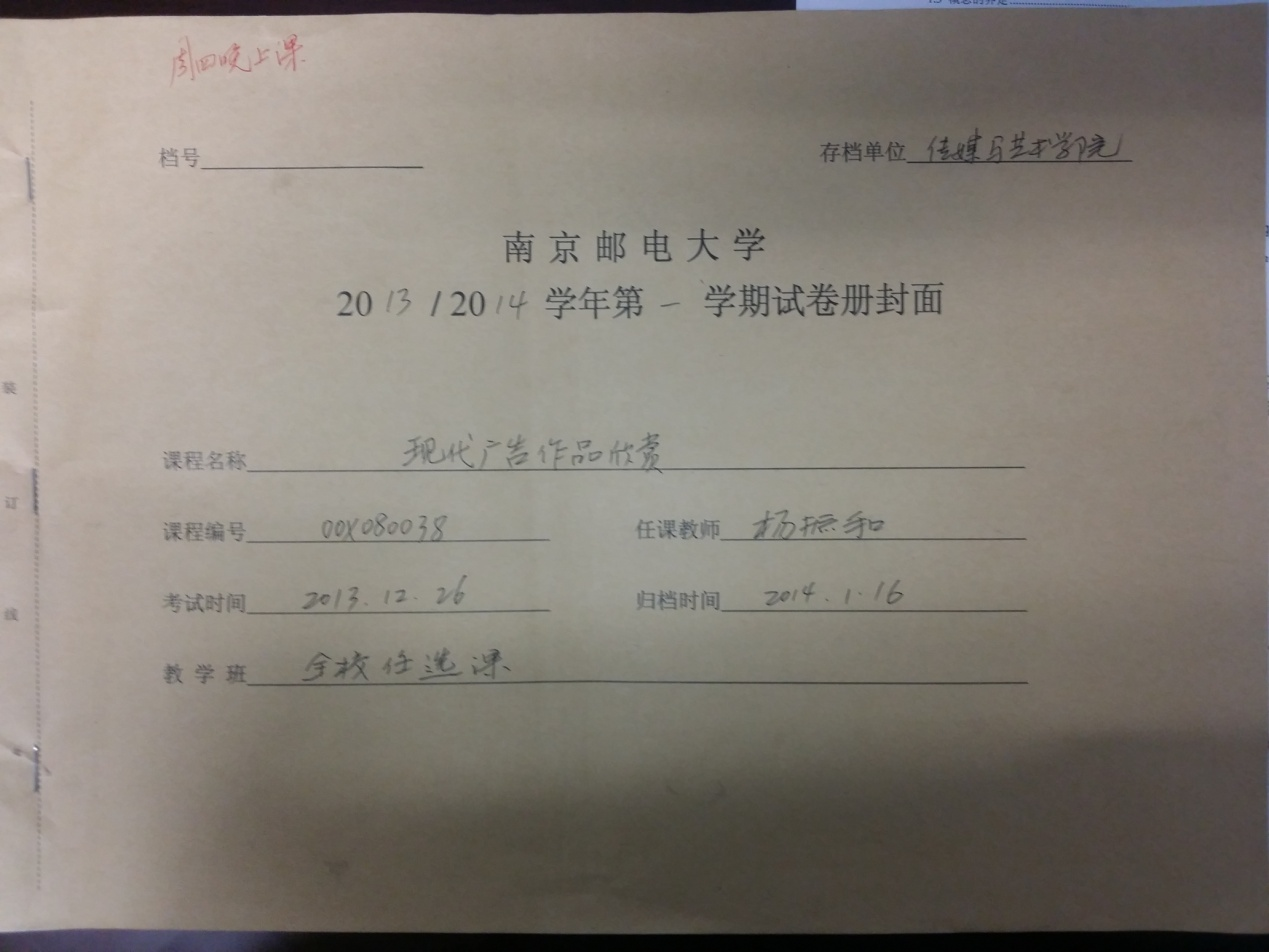 周四晚上课
档号
存档单位 传媒与艺术学院
南京邮电大学
2013/2014学年第一学期试卷册封面
课程名称 现代广告作品欣赏
课程编号 00X080038 任课教师 杨振和
考试时间 2013.12.26 归档时间 2014.1.16
教学班 全校任选课
装
订
线